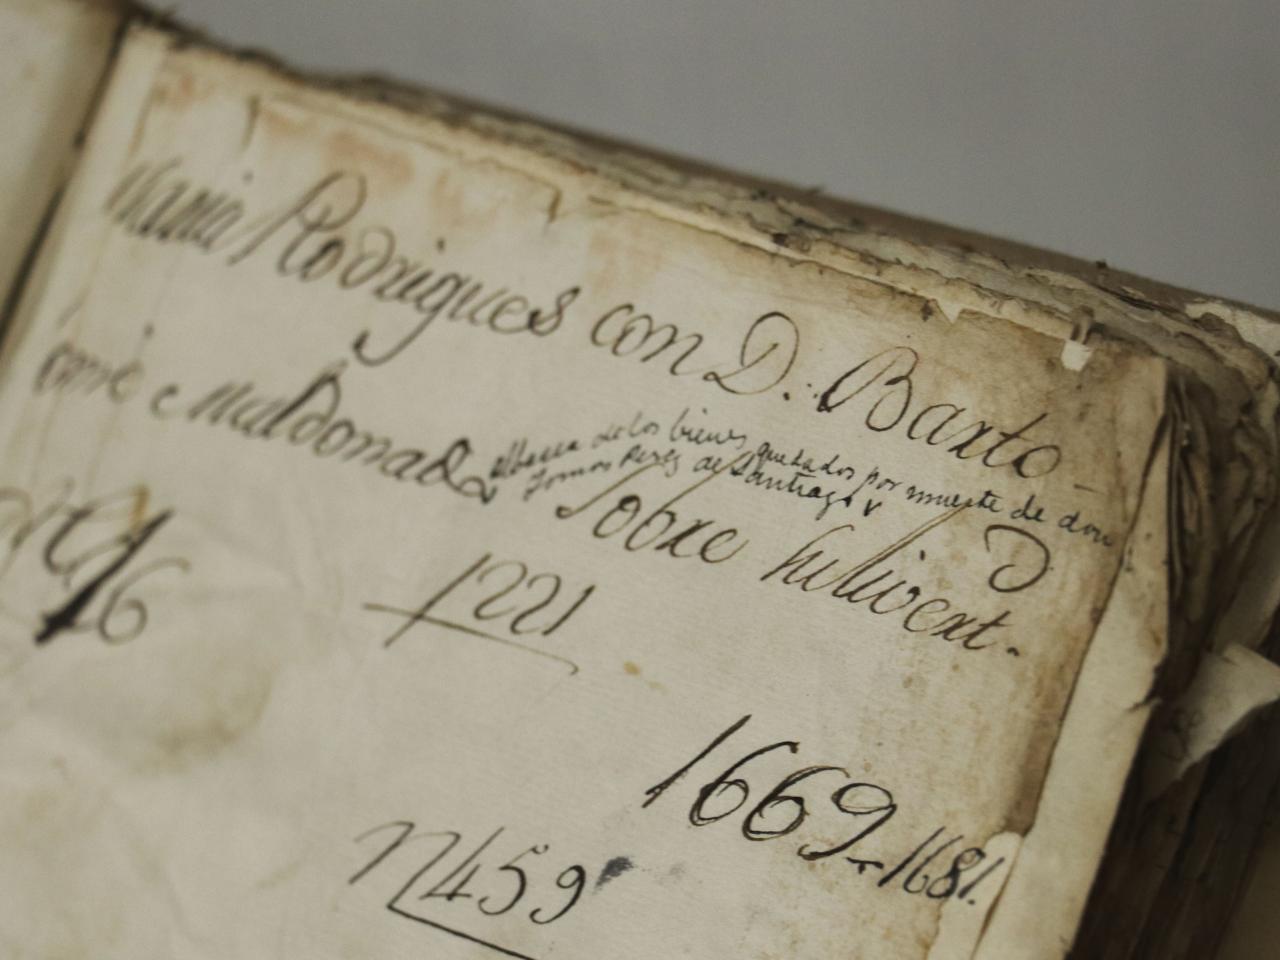 Maria Rodrigues con D. Barto-
omé Maldonado
albacea de los bienes quedados por muerte de don
Tomas Perez de Santiago
Sobre
16
1221
1669-1681.
N459